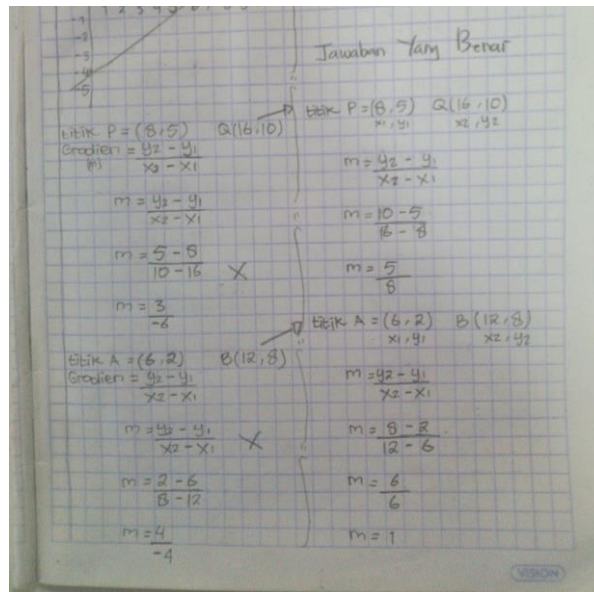 Jawaban Yang Benar
-1
-2
-3
-4
-5
titik P = (8,5) Q(16,10)
Gradien = y2 - y1
(m) x2 - x1
m = y2 - y1
x2 - x1
m = 5 - 8
10 - 16 X
m = 3
-6
titik A = (6,2) B(12,8)
Gradien = y2 - y1
x2 - x1
m = y2 - y1
x2 - x1 X
m = 2 - 6
8 - 12
m = 4
-4
titik P = (8,5) Q(16,10)
x1, y1 x2, y2
m = y2 - y1
x2 - x1
m = 10 - 5
16 - 8
m = 5
8
titik A = (6,2) B(12,8)
x1, y1 x2, y2
m = y2 - y1
x2 - x1
m = 8 - 2
12 - 6
m = 6
6
m = 1
VISION